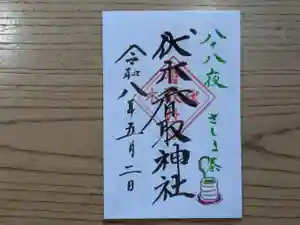 八十八夜
さしま茶
伏木香取神社
令和八年五月二日